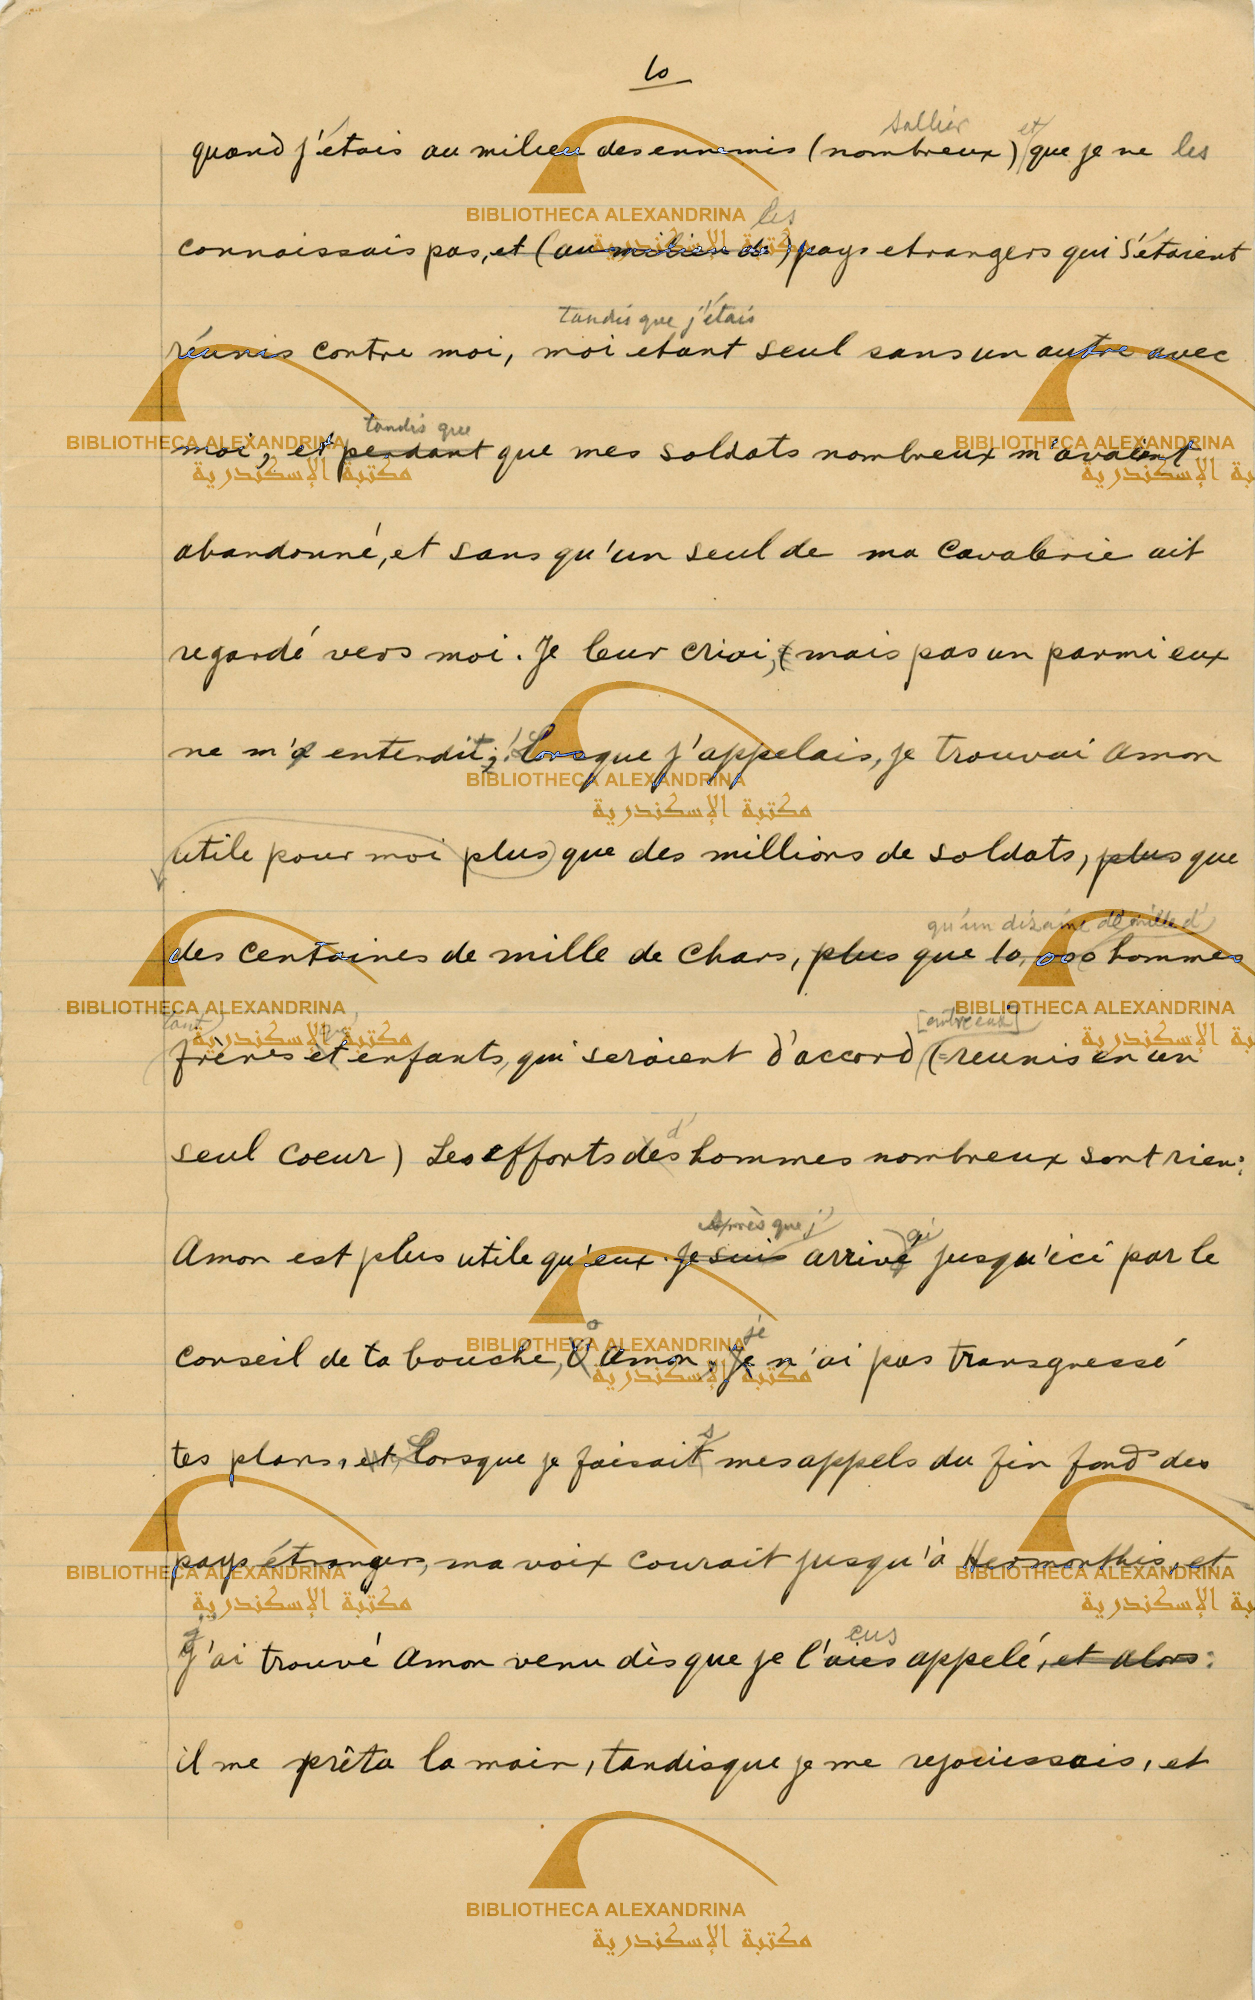 10
sallier et
quand j'étais au milieu des ennemis (nombreux) que je ne les
les
connaissais pas, et (au milieu de) pays etrangers qui s'étaient
tandis que j'étais
réunis contre moi, moi etant seul sans un autre avec
tandis que
moi, et pendant que mes soldats nombreux m'avaient
abandonné, et sans qu'un seul de ma cavalerie ait
regardé vers moi. Je leur criai, mais pas un parmi eux
ne m'a entendit; Lorsque j'appelais, je trouvai Amon
utile pour moi plus que des millions de soldats, plus que
qu'un dizaine de mille d'
des centaines de mille de chars, plus que 10,000 hommes
tant que [entre eux]
frères et enfants, qui seraient d'accord (= reunis en un
d'
seul coeur) Les efforts des hommes nombreux sont rien:
Après que j'
Amon est plus utile qu'eux. Je suis arrivé jusqu'ici par le
ô je
conseil de ta bouche, Ô Amon, Je n'ai pas transgressé
s
tes plans, et Lorsque je faisait mes appels du fin fond des
pays étrangers, ma voix courait jusqu'à Hermonthis, et
eus
J'ai trouvé Amon venu dès que je l'aies appelé, et alors:
il me prêta la main, tandisque je me rejouissais, et
BIBLIOTHECA ALEXANDRINA
مكتبة الإسكندرية